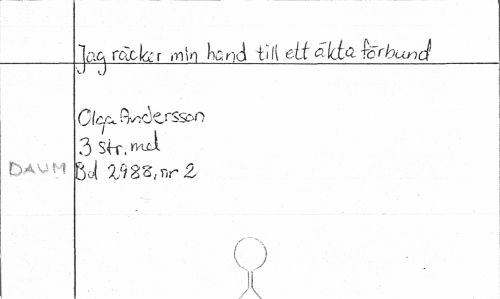 Jag räcker min hand till ett äkta förbund
Olga Andersson
3 str. mel
DAUM Bd 2988, nr 2